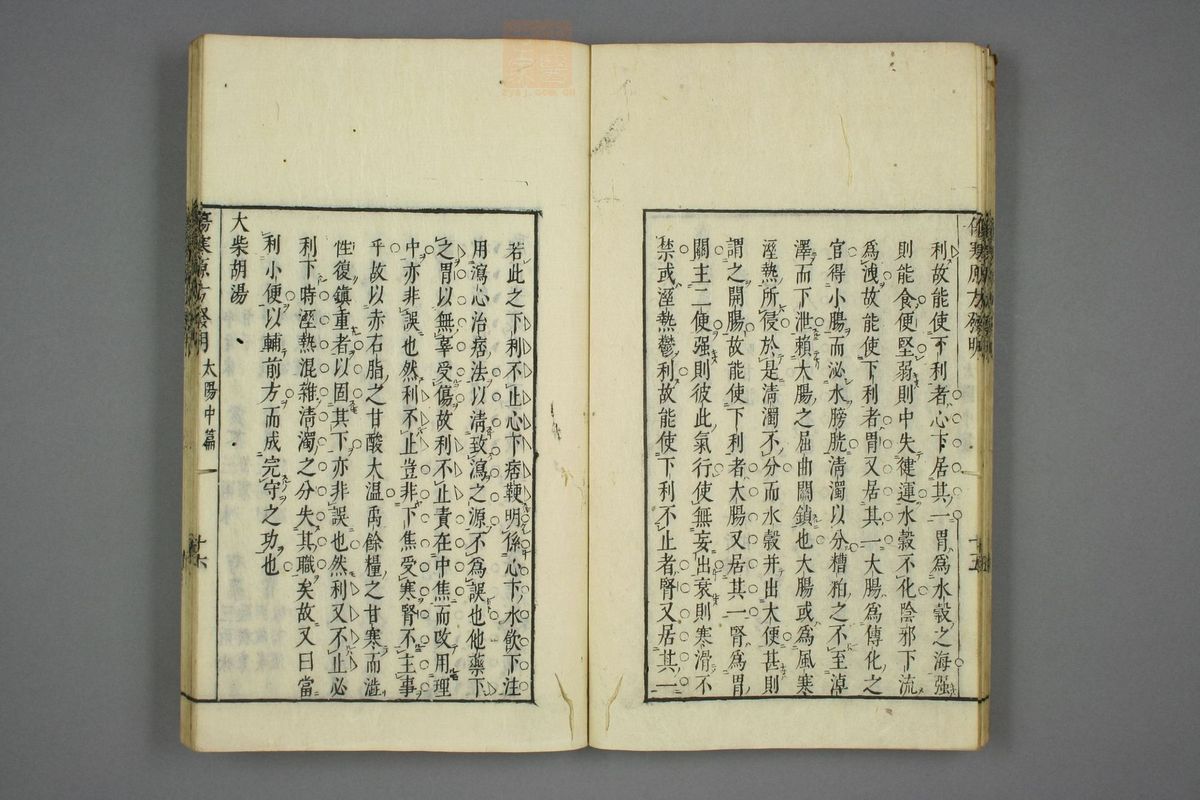 傷寒原方發明
利故能使下利者心下居其一胃爲水穀之海强
則能食便堅弱則中失健運水穀不化陰邪下流
爲洩故能使下利者胃又居其一大腸爲傳化之
官得小腸而泌水膀胱清濁以分糟粕之不至淖
澤而下泄賴大腸之屈曲關鎖也大腸或爲風寒
溼熱所侵於是清濁不分而水穀并出大便甚則
謂之開腸故能使下利者大腸又居其一腎爲胃
關主二便强則彼此氣行使無妄出衰則寒滑不
禁或溼熱鬱利故能使下利不止者腎又居其一
若此之下利不止心下痞鞕明係心下水飲下注
用瀉心治痞法以清致瀉之源不爲誤也他藥下
之胃以無辜受傷故利不止責在中焦而改用理
中亦非誤也然利不止豈非下焦受寒腎不主事
乎故以赤石脂之甘酸大温禹餘糧之甘寒而澁
性復鎮重者以固其下亦非誤也然利又不止必
利下時溼熱混雜清濁之分失其職矣故又曰當
利小便以輔前方而成完守之功也
大柴胡湯
傷寒原方發明 太陽中篇 十六